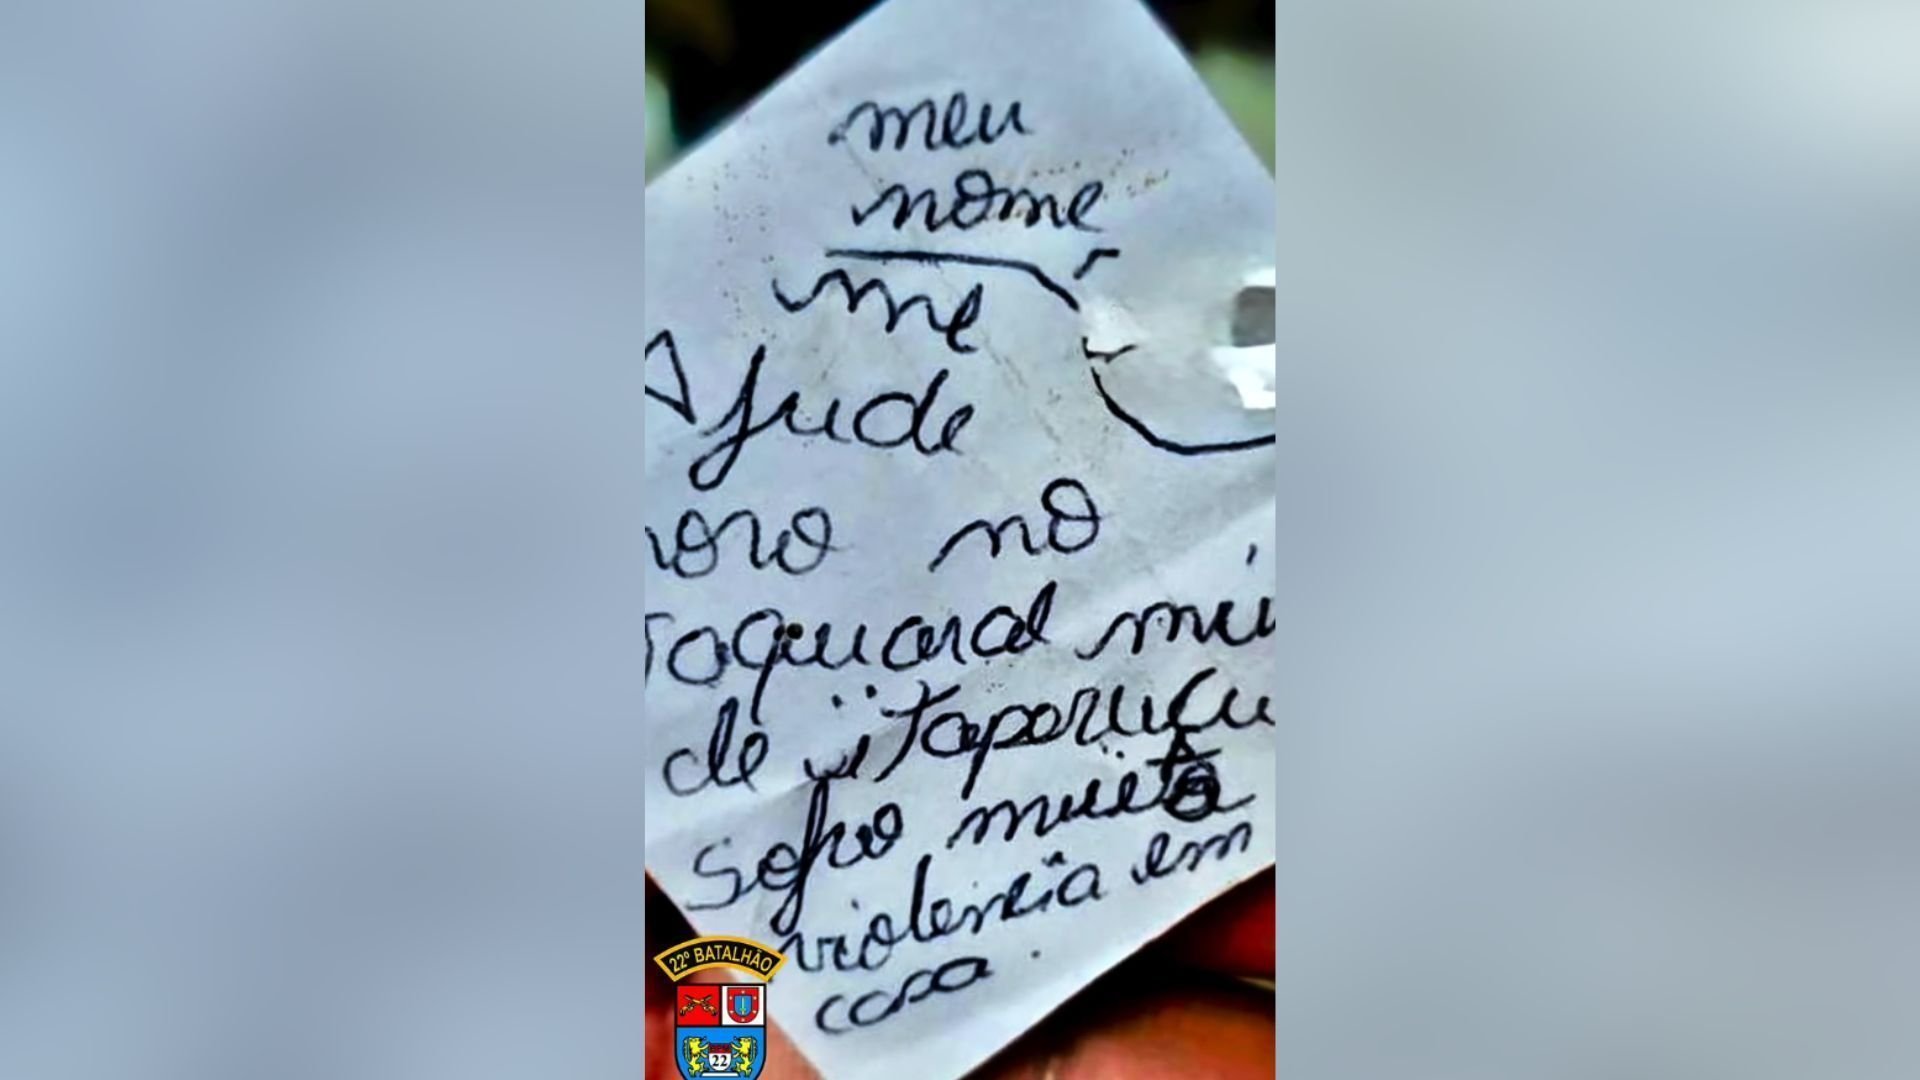 meu
nome
me
Ajude
moro no
Taquaral mu
de itaperuçu
Sofro muita
violencia em
casa.
22º BATALHÃO
BPM
22